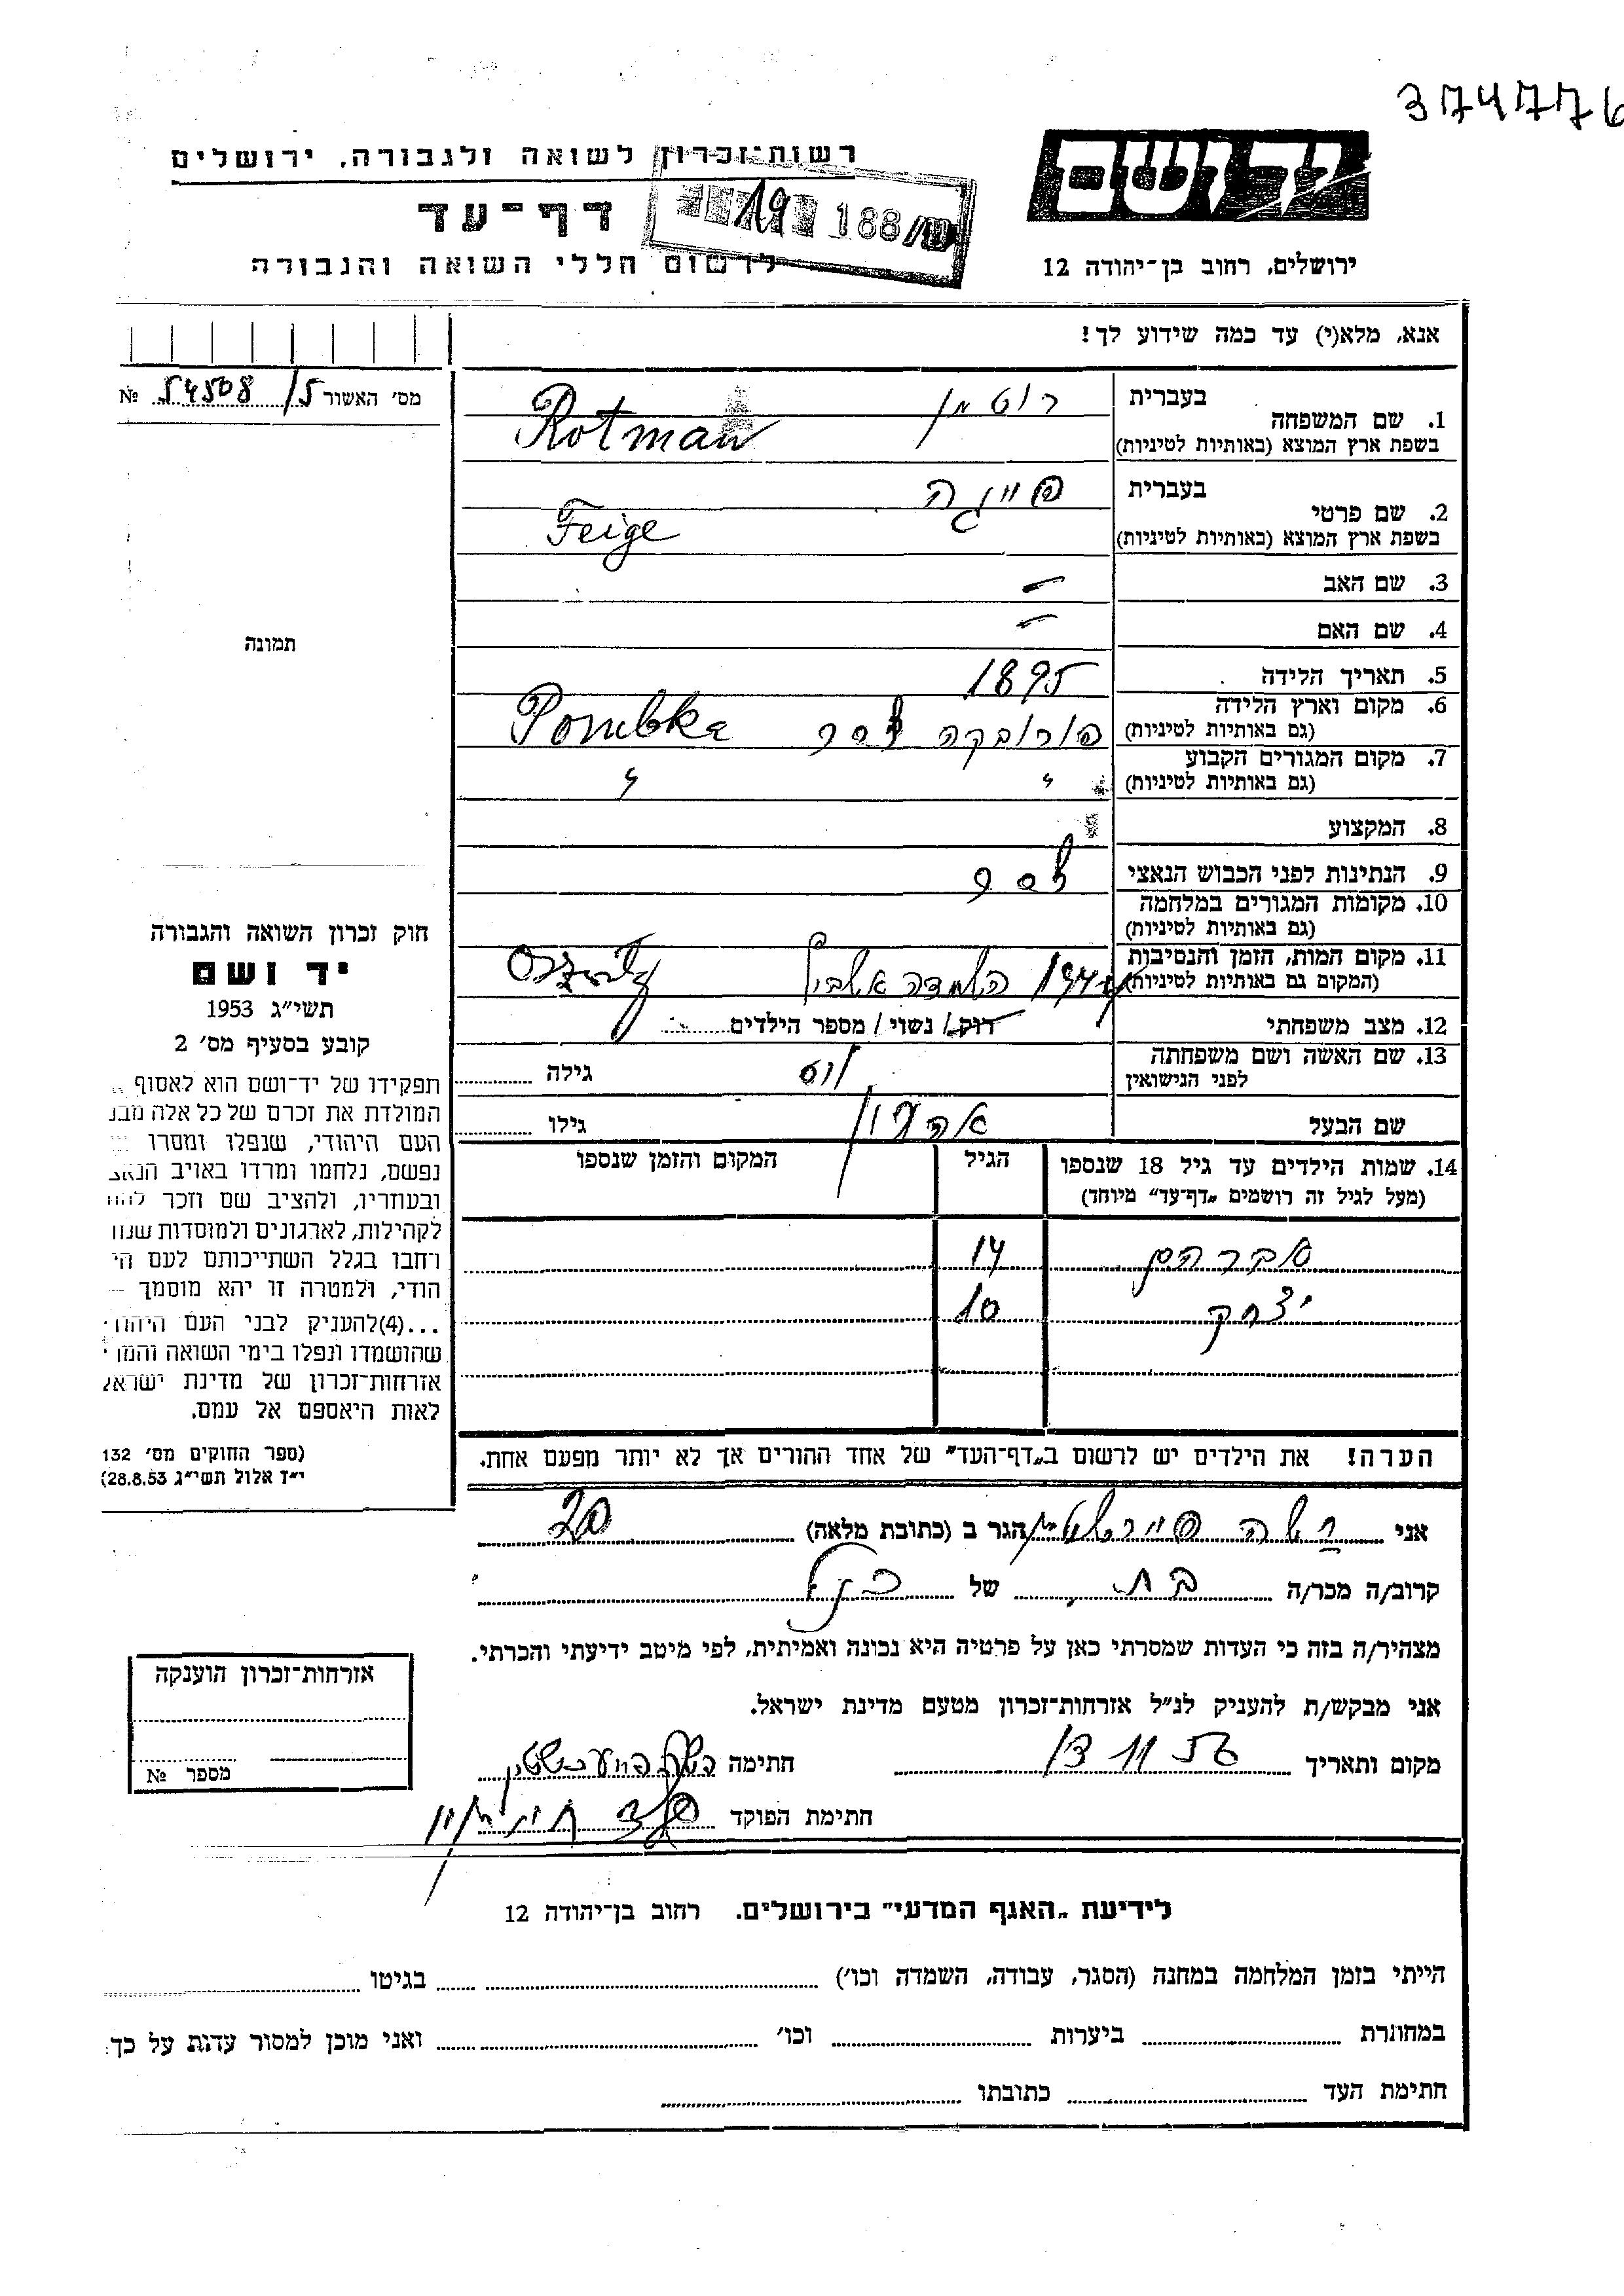 374776
רשות־זכרון לשואה ולגבורה, ירושלים
יד ושם
188/
דף־עד
לרשום חללי השואה והגבורה
ירושלים, רחוב בן־יהודה 12
אנא, מלא(י) עד כמה שידוע לך!
מס' האשור 15/ 54508 №
1. שם המשפחה
בעברית רוטמן
בשפת ארץ המוצא (באותיות לטיניות) Rotman
2. שם פרטי
בעברית פייגה
בשפת ארץ המוצא (באותיות לטיניות) Feige
3. שם האב –
4. שם האם –
5. תאריך הלידה 1895
6. מקום וארץ הלידה
(גם באותיות לטיניות)
7. מקום המגורים הקבוע
(גם באותיות לטיניות) " "
8. המקצוע
9. הנתינות לפני הכבוש הנאצי
10. מקומות המגורים במלחמה
(גם באותיות לטיניות)
11. מקום המות, הזמן והנסיבות
(המקום גם באותיות לטיניות) השמדה
12. מצב משפחתי רווק / נשוי / מספר הילדים
13. שם האשה ושם משפחתה
לפני הנישואין גילה
שם הבעל אהרון גילו
14. שמות הילדים עד גיל 18 שנספו הגיל המקום והזמן שנספו
(מעל לגיל זה רושמים „דף־עד" מיוחד)
אברהם 14
יצחק 10
הערה! את הילדים יש לרשום ב„דף־העד" של אחד ההורים אך לא יותר מפעם אחת.
תמונה
חוק זכרון השואה והגבורה
יד ושם
תשי"ג 1953
קובע בסעיף מס' 2
תפקידו של יד־ושם הוא לאסוף
המולדת את זכרם של כל אלה מבנ
העם היהודי, שנפלו ומסרו
נפשם, נלחמו ומרדו באויב הנאצ
ובעוזריו, ולהציב שם וזכר להם
לקהילות, לארגונים ולמוסדות שנח
רחבו בגלל השתייכותם לעם הי
הודי, ולמטרה זו יהא מוסמך –
...(4)להעניק לבני העם היהוד
שהושמדו ונפלו בימי השואה והמר
אזרחות־זכרון של מדינת ישראל
לאות היאספם אל עמם.
(ספר החוקים מס' 132
י"ז אלול תשי"ג 28.8.53)
אני הגר ב (כתובת מלאה)
קרוב/ה מכר/ה בת של
מצהיר/ה בזה כי העדות שמסרתי כאן על פרטיה היא נכונה ואמיתית, לפי מיטב ידיעתי והכרתי.
אני מבקש/ת להעניק לנ"ל אזרחות־זכרון מטעם מדינת ישראל.
מקום ותאריך 13/ 11 56 חתימה
חתימת הפוקד
אזרחות־זכרון הוענקה
מספר №
לידיעת „האגף המדעי" בירושלים. רחוב בן־יהודה 12
הייתי בזמן המלחמה במחנה (הסגר, עבודה, השמדה וכו') בגיטו
במחתרת ביערות וכו' ואני מוכן למסור עדות על כך:
חתימת העד כתובתו